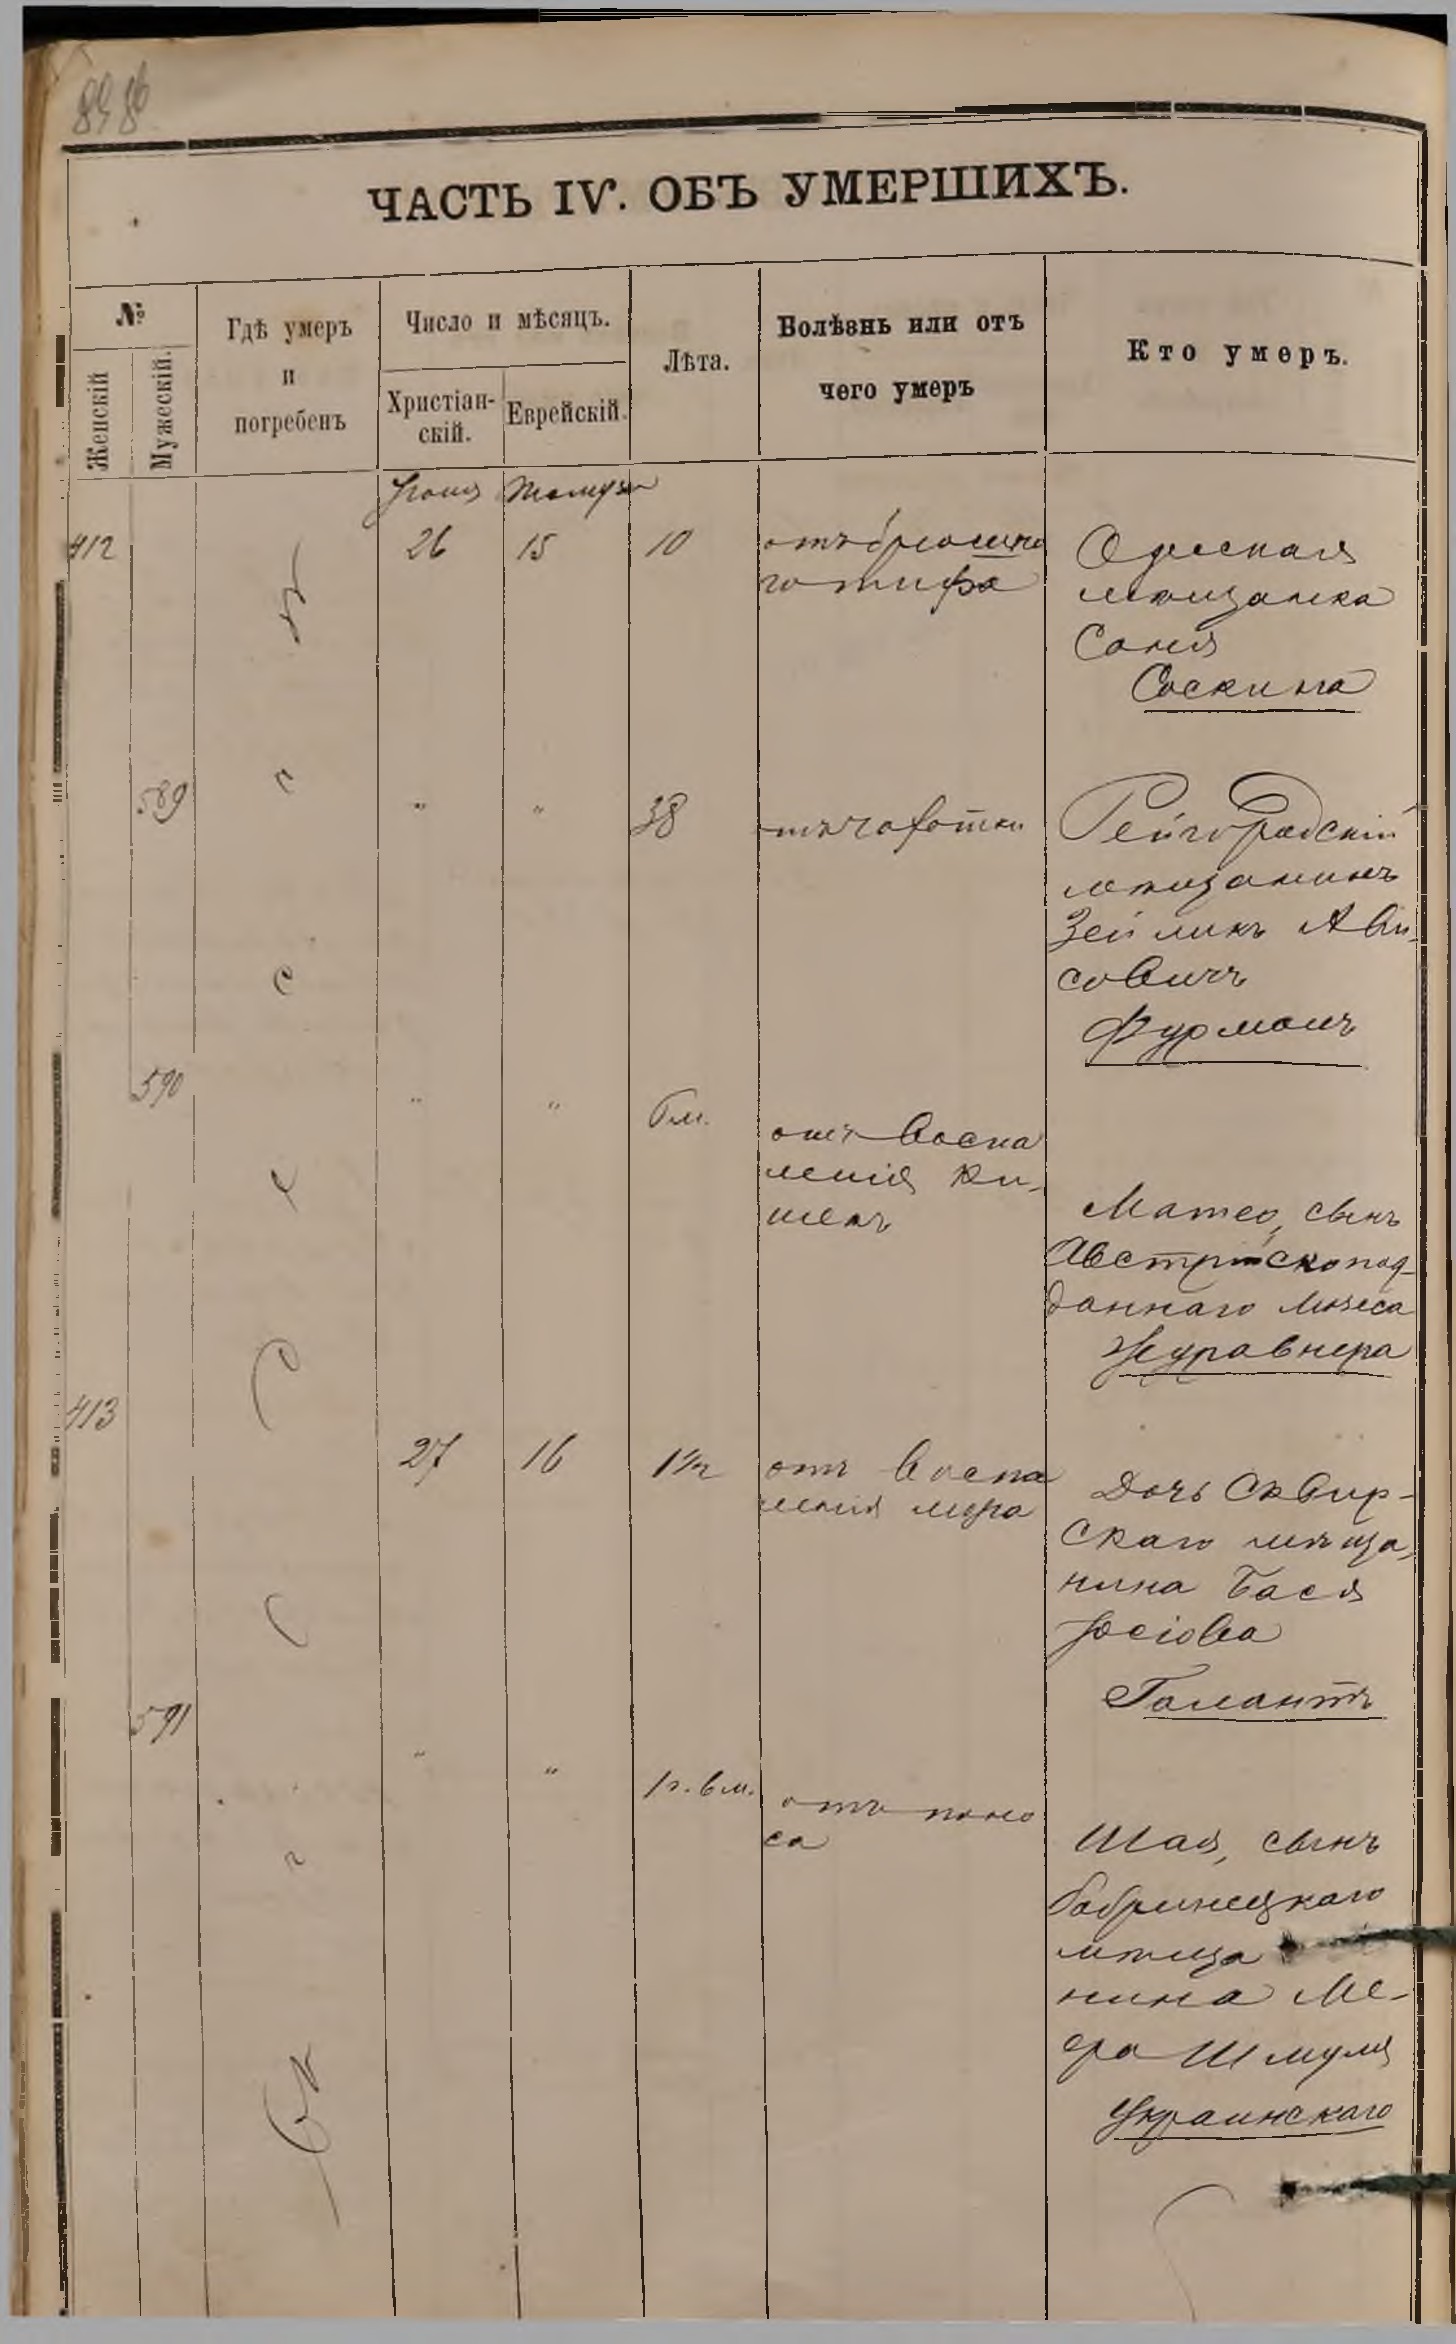 ЧАСТЬ IV. ОБЪ УМЕРШИХЪ.
№
Женскій
Мужескій.
Гдѣ умеръ
и
погребенъ
Число и мѣсяцъ.
Христіан-
скій.
Еврейскій.
Лѣта.
Болѣзнь или отъ
чего умеръ
Кто умеръ.
412
26
15
10
отъ брюшна
го тифа
Одесская
мѣщанка
Соня
Соскина
589
"
"
38
отъ чахотки
Рейгородскій
мѣщанинъ
Зейликъ Ави-
совичъ
Фурманъ
590
"
"
6 м.
отъ воспа
ленія ки-
шекъ
Матео, сынъ
Австрійскопод-
даннаго Мозеса
Журавнера
413
27
16
1½
отъ воспа
ленія мозга
Дочь Сквир-
скаго мѣща-
нина Бася
Іосіова
Галантъ
591
"
"
1 г. 6 м.
отъ поно
са
Шая, сынъ
бобринецкаго
мѣща
нина Ме-
ера Шмуля
Украинскаго